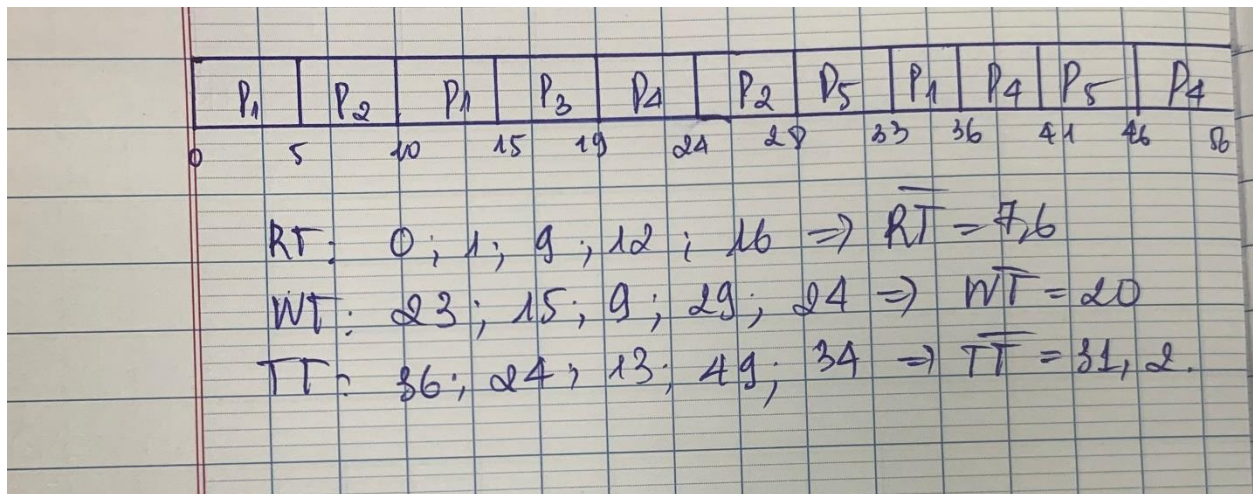 P₁ P₂ P₁ P₃ P₄ P₂ P₅ P₁ P₄ P₅ P₄
0 5 10 15 19 24 28 33 36 41 46 56
RT: 0; 1; 9; 12; 16 ⇒ R̅T̅ = 7,6
WT: 23; 15; 9; 29; 24 ⇒ W̅T̅ = 20
TT: 36; 24; 13; 49; 34 ⇒ T̅T̅ = 31,2.